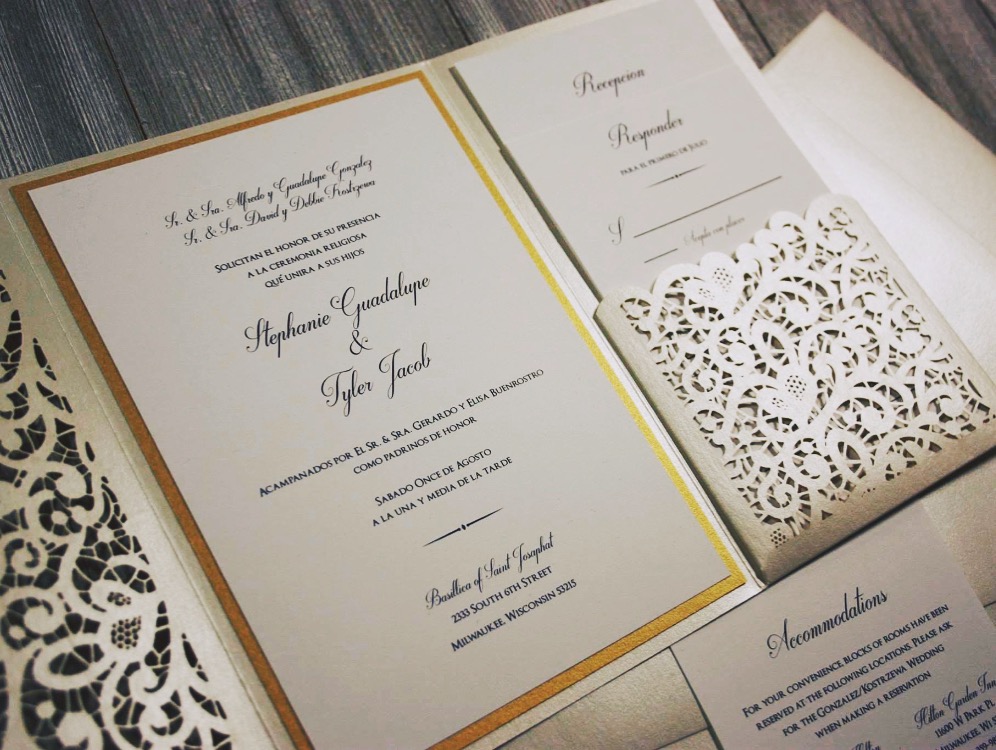 Sr. & Sra. Alfredo y Guadalupe Gonzalez
Sr. & Sra. David y Debbie Kostrzewa
Solicitan el honor de su presencia
a la ceremonia religiosa
qué unira a sus hijos
Stephanie Guadalupe
&
Tyler Jacob
Acampanados por El Sr. & Sra. Gerardo y Elisa Buenrostro
como padrinos de honor
Sabado Once de Agosto
a la una y media de la tarde
Basillica of Saint Josaphat
2333 South 6th Street
Milwaukee, Wisconsin 53215
Recepcion
Responder
para el primero de Julio
S
Acepta con placer
Accommodations
For your convenience blocks of rooms have been
reserved at the following locations. Please ask
for the Gonzalez/Kostrzewa Wedding
when making a reservation
Hilton Garden Inn
11600 W Park Pl
Milwaukee, Wi